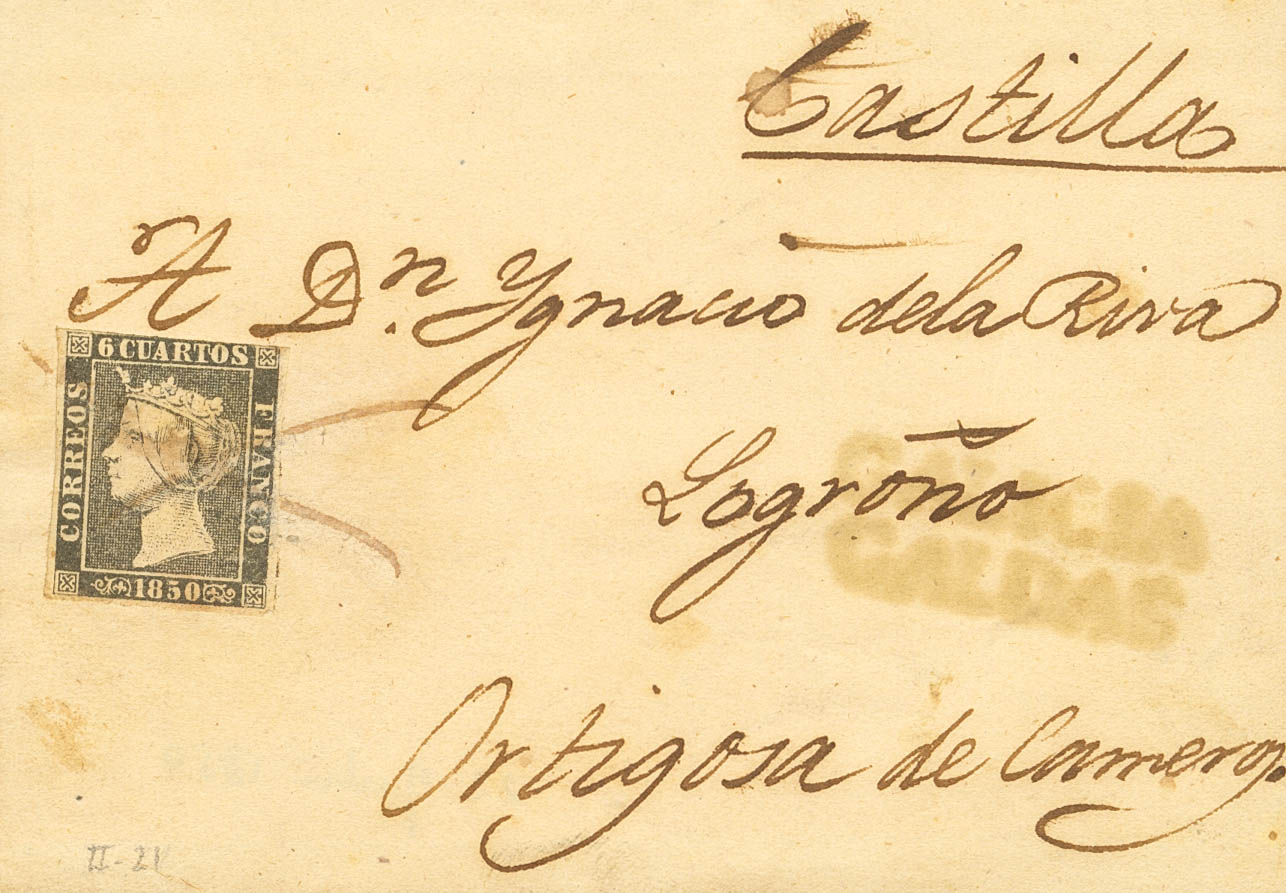 Castilla
A Dn. Ygnacio dela Riva
6 CUARTOS
CORREOS
FRANCO
1850
Logroño
CALDAS
Ortigosa de Cameros
II-21